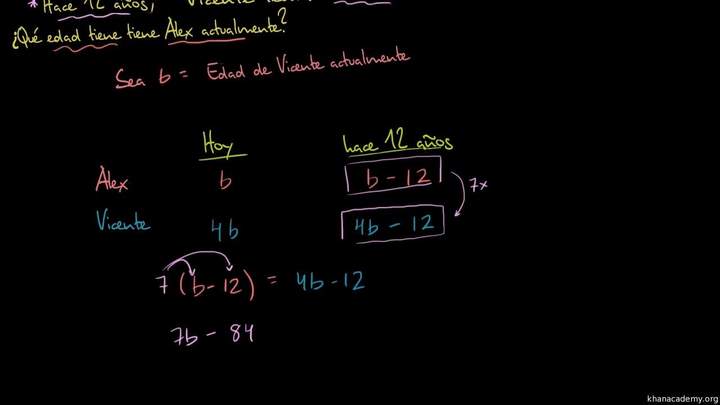 * Hace 12 años, Vicente
¿Qué edad tiene tiene Alex actualmente?
Sea b = Edad de Vicente actualmente
Hoy hace 12 años
Alex b b - 12 7x
Vicente 4b 4b - 12
7 (b - 12) = 4b - 12
7b - 84
khanacademy.org